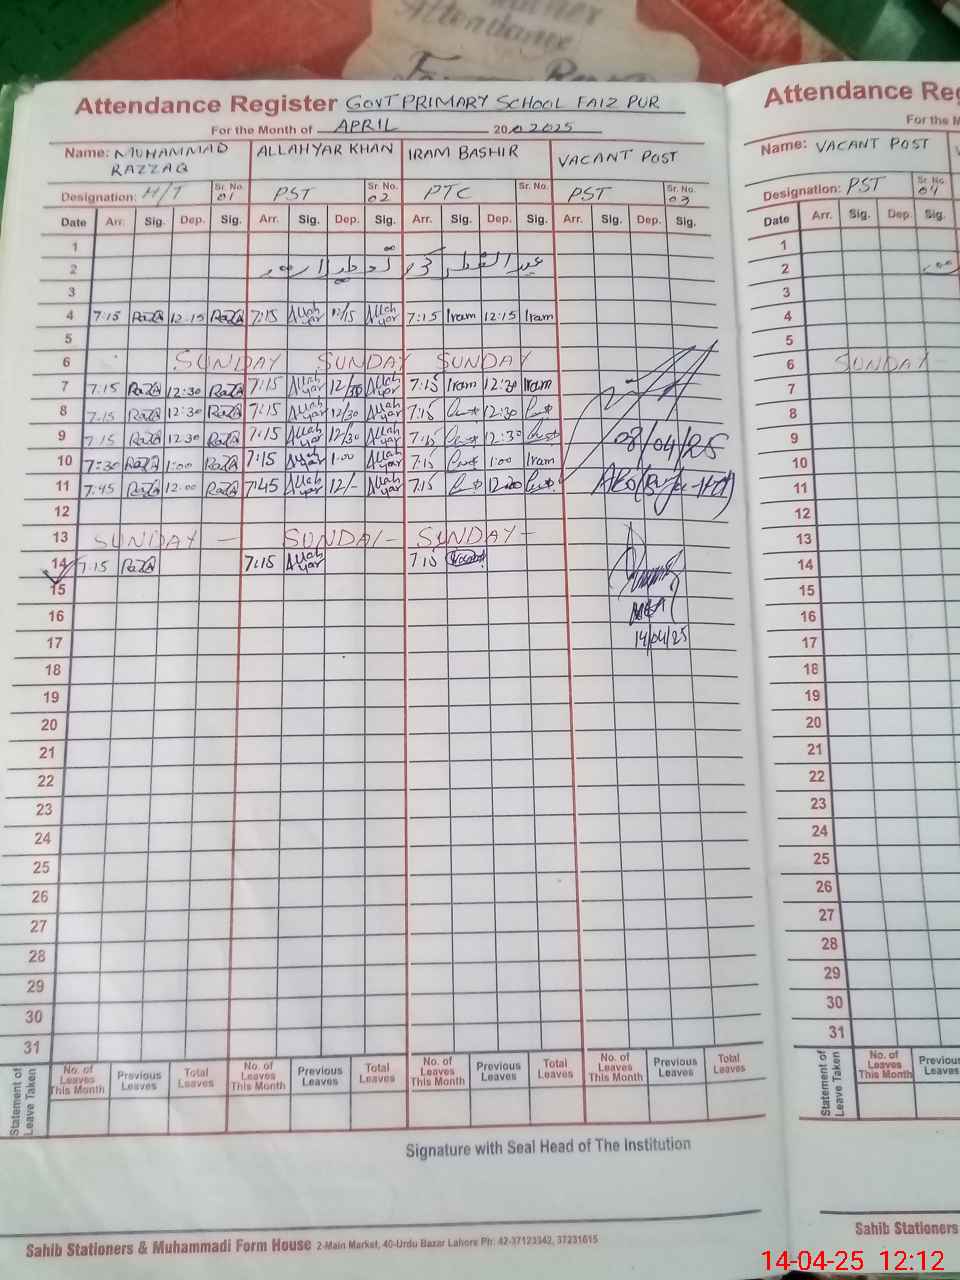 Teacher
Attendance
Attendance Register GOVT PRIMARY SCHOOL FAIZ PUR
For the Month of APRIL 20 2025
Name: MUHAMMAD RAZZAQ ALLAHYAR KHAN IRAM BASHIR VACANT POST
Designation: H/T Sr. No. 01 PST Sr. No. 02 PTC Sr. No. PST Sr. No. 03
Date Arr. Sig. Dep. Sig. Arr. Sig. Dep. Sig. Arr. Sig. Dep. Sig. Arr. Sig. Dep. Sig.
1
2 عید الفطر
3
4 7:15 RazA 12:15 RazA 7:15 Allah yar 12/15 Allah yar 7:15 Iram 12:15 Iram
5
6 SUNDAY SUNDAY SUNDAY
7 7:15 RazA 12:30 RazA 7:15 Allah yar 12/30 Allah yar 7:15 Iram 12:30 Iram
8 7:15 RazA 12:30 RazA 7:15 Allah yar 12/30 Allah yar 7:15 12:30
9 7:15 RazA 12:30 RazA 7:15 Allah yar 12/30 Allah yar 7:15 12:30 08/04/25
10 7:30 RazA 1:00 RazA 7:15 Allah yar 1:00 Allah yar 7:15 1:00 Iram
11 7:45 RazA 12:00 RazA 7:45 Allah yar 12/- Allah yar 7:15
12
13 SUNDAY - SUNDAY - SUNDAY -
14 7:15 RazA 7:15 Allah yar 7:15
15
16 MEA
17 14/04/25
18
19
20
21
22
23
24
25
26
27
28
29
30
31
Statement of Leave Taken No. of Leaves This Month Previous Leaves Total Leaves No. of Leaves This Month Previous Leaves Total Leaves No. of Leaves This Month Previous Leaves Total Leaves No. of Leaves This Month Previous Leaves Total Leaves
Signature with Seal Head of The Institution
Sahib Stationers & Muhammadi Form House 2-Main Market, 40-Urdu Bazar Lahore Ph: 42-37123342, 37231615
Attendance Reg
For the M
Name: VACANT POST
Designation: PST Sr. No. 04
Date Arr. Sig. Dep. Sig.
1
2
3
4
5
6 SUNDAY -
7
8
9
10
11
12
13
14
15
16
17
18
19
20
21
22
23
24
25
26
27
28
29
30
31
Statement of Leave Taken No. of Leaves This Month Previous Leaves
Sahib Stationers
14-04-25 12:12